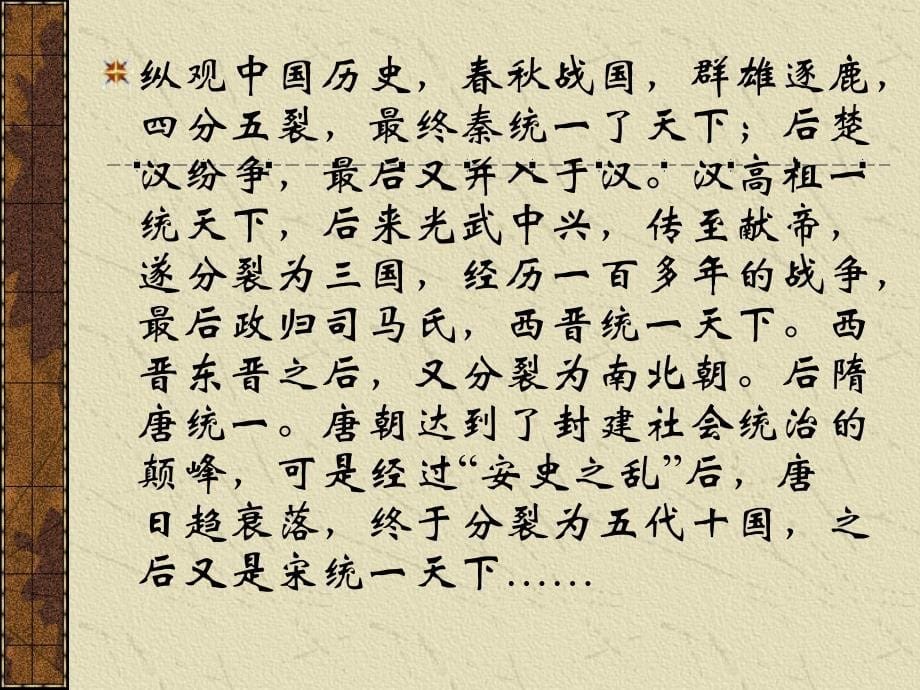 纵观中国历史，春秋战国，群雄逐鹿，
四分五裂，最终秦统一了天下；后楚
汉纷争，最后又并入于汉。汉高祖一
统天下，后来光武中兴，传至献帝，
遂分裂为三国，经历一百多年的战争，
最后政归司马氏，西晋统一天下。西
晋东晋之后，又分裂为南北朝。后隋
唐统一。唐朝达到了封建社会统治的
颠峰，可是经过“安史之乱”后，唐
日趋衰落，终于分裂为五代十国，之
后又是宋统一天下……